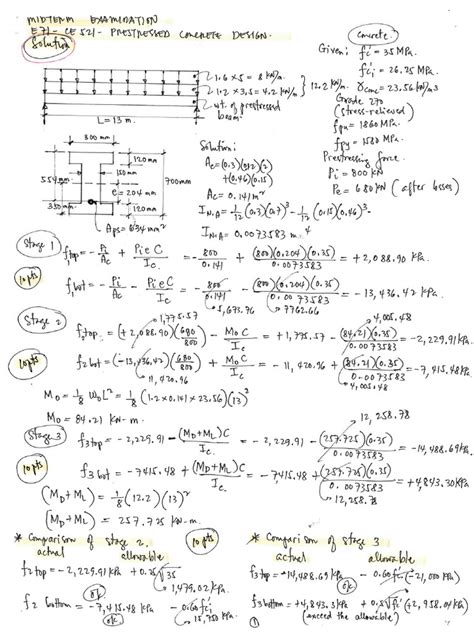 MIDTERM EXAMINATION
E 71 - CE 521 - PRESTRESSED CONCRETE DESIGN.
Solution
concrete:
Given: fc' = 35 MPa.
fci' = 26.25 MPa.
γconc = 23.56 KN/m3
Grade 270
(stress-relieved)
fpu = 1860 MPa
fpy = 1580 MPa
Prestressing force.
Pi = 800 KN
Pe = 680 KN (after losses)
1.6 x 5 = 8 KN/m
1.2 x 3.5 = 4.2 KN/m
12.2 KN/m.
wt. of prestressed
beam.
L = 13 m.
300 mm
120 mm
150 mm
554 mm
700 mm
e = 204 mm
330 mm
120 mm
Solution:
Ac = (0.3)(0.12)(2)
+ (0.46)(0.15)
Ac = 0.141 m²
I N.A = 1/12 (0.3)(0.7)³ - 1/12 (0.15)(0.46)³
I N.A = 0.0073583 m⁴
Stage 1
10 pts
f1top = - Pi/Ac + Pi e C/Ic = - 800/0.141 + (800)(0.204)(0.35)/0.0073583 = + 2,088.90 KPa.
f1bot = - Pi/Ac - Pi e C/Ic = - 800/0.141 - (800)(0.204)(0.35)/0.0073583 = - 13,436.42 KPa.
5,673.76 7762.66
Stage 2
1,775.57 4,005.48
f2top = (+2,088.90)(680/800) - Mo C/Ic = + 1,775.57 - (84.21)(0.35)/0.0073583 = - 2,229.91 KPa.
10 pts
f2bot = (-13,436.42)(680/800) + Mo C/Ic = - 11,420.96 + (84.21)(0.35)/0.0073583 = - 7,415.48 KPa
11,420.96 4,005.48
Mo = 1/8 WoL² = 1/8 (1.2 x 0.141 x 23.56)(13)²
Mo = 84.21 KN-m.
12,258.78
Stage 3
f3top = - 2,229.91 - (MD+ML)C/Ic = - 2,229.91 - (257.725)(0.35)/0.0073583 = - 14,488.69 KPa
10 pts
f3bot = - 7415.48 + (MD+ML)C/Ic = - 7,415.48 + (257.725)(0.35)/0.0073583 = + 4,843.30 KPa
12,258.78
(MD+ML) = 1/8 (12.2)(13)²
(MD+ML) = 257.725 KN-m
* Comparison of stage 2.
10 pts
* Comparison of stage 3
actual allowable
actual allowable
f2top = - 2,229.91 KPa
1,479.02 KPa
f3top = - 14,488.69 KPa - 0.60fc' (-21,000 KPa)
ok
ok
f2 bottom = - 7,415.48 KPa - 0.60fc'
ok
15,750 KPa
f3bottom = + 4,843.3 KPa (+2,958.04 KPa)
(exceed the allowable)